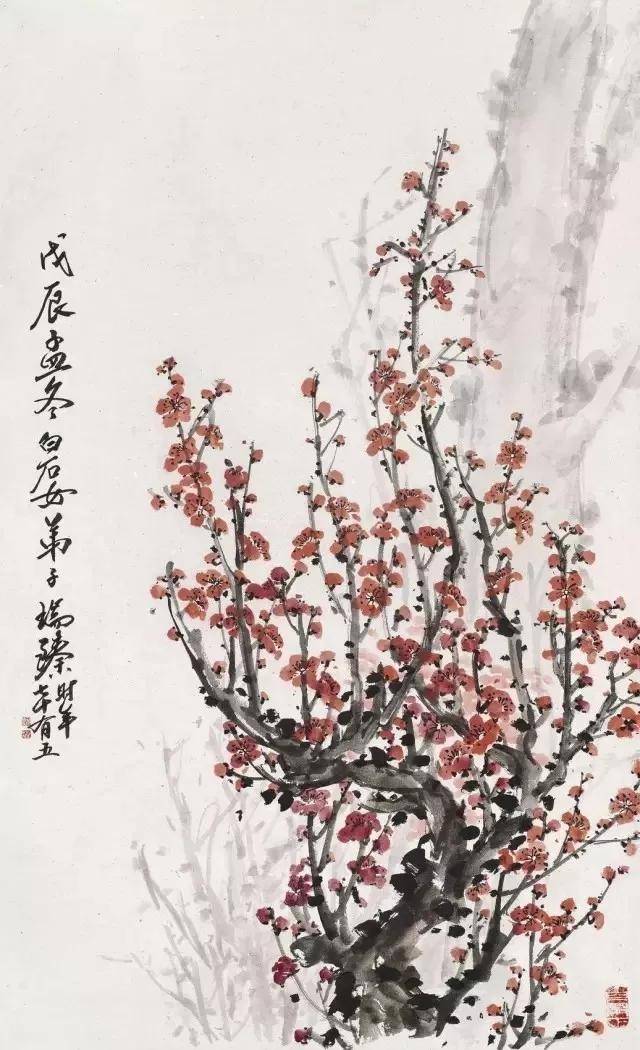 戊辰孟冬白石女弟子瑞臻
时年
有五